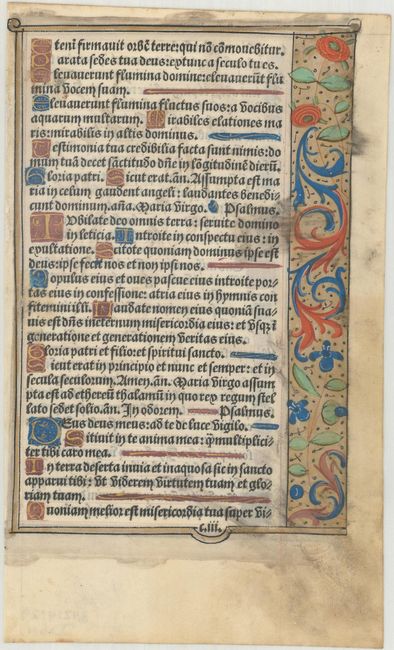 Eteni firmavit orbē terre: qui nō cōmovebitur.
Parata sedes tua deus: ex tunc a seculo tu es.
Elevaverunt flumina domine: elevaverūt flu
mina vocem suam.
Elevaverunt flumina fluctus suos: a vocibus
aquarum multarum. Mirabiles elationes ma
ris: mirabilis in altis dominus.
Testimonia tua credibilia facta sunt nimis: do
mum tuā decet sāctitudo dn̄e in lōgitudinē dierū.
Gloria patri. Sicut erat. an̄. Assumpta est ma
ria in celum gaudent angeli: laudantes benedi
cunt dominum. an̄a. Maria virgo. Psalmus.
Iubilate deo omnis terra: servite domino
in leticia. Introite in conspectu eius: in
exultatione. Scitote quoniam dominus ipse est
deus: ipse fecit nos et non ipsi nos.
Populus eius et oves pascue eius introite por
tas eius in confessione: atria eius in hymnis con
fitemini illi. Laudate nomen eius quoniā sua
vis est dn̄s in eternum misericordia eius: et vsqȝ ī
generatione et generationem veritas eius.
Gloria patri et filio: et spiritui sancto.
Sicut erat in principio et nunc et semper: et in
secula seculorum. Amen. an̄. Maria virgo assum
pta est ad ethereū thalamū in quo rex regum stel
lato sedet solio. an̄. In odorem. Psalmus.
Deus deus meus: ad te de luce vigilo.
Sitivit in te anima mea: q̄ multiplici
ter tibi caro mea.
In terra deserta invia et inaquosa sic in sancto
apparui tibi: vt viderem virtutem tuam et glo
riam tuam.
Quoniam melior est misericordia tua super vi-
c.iii.